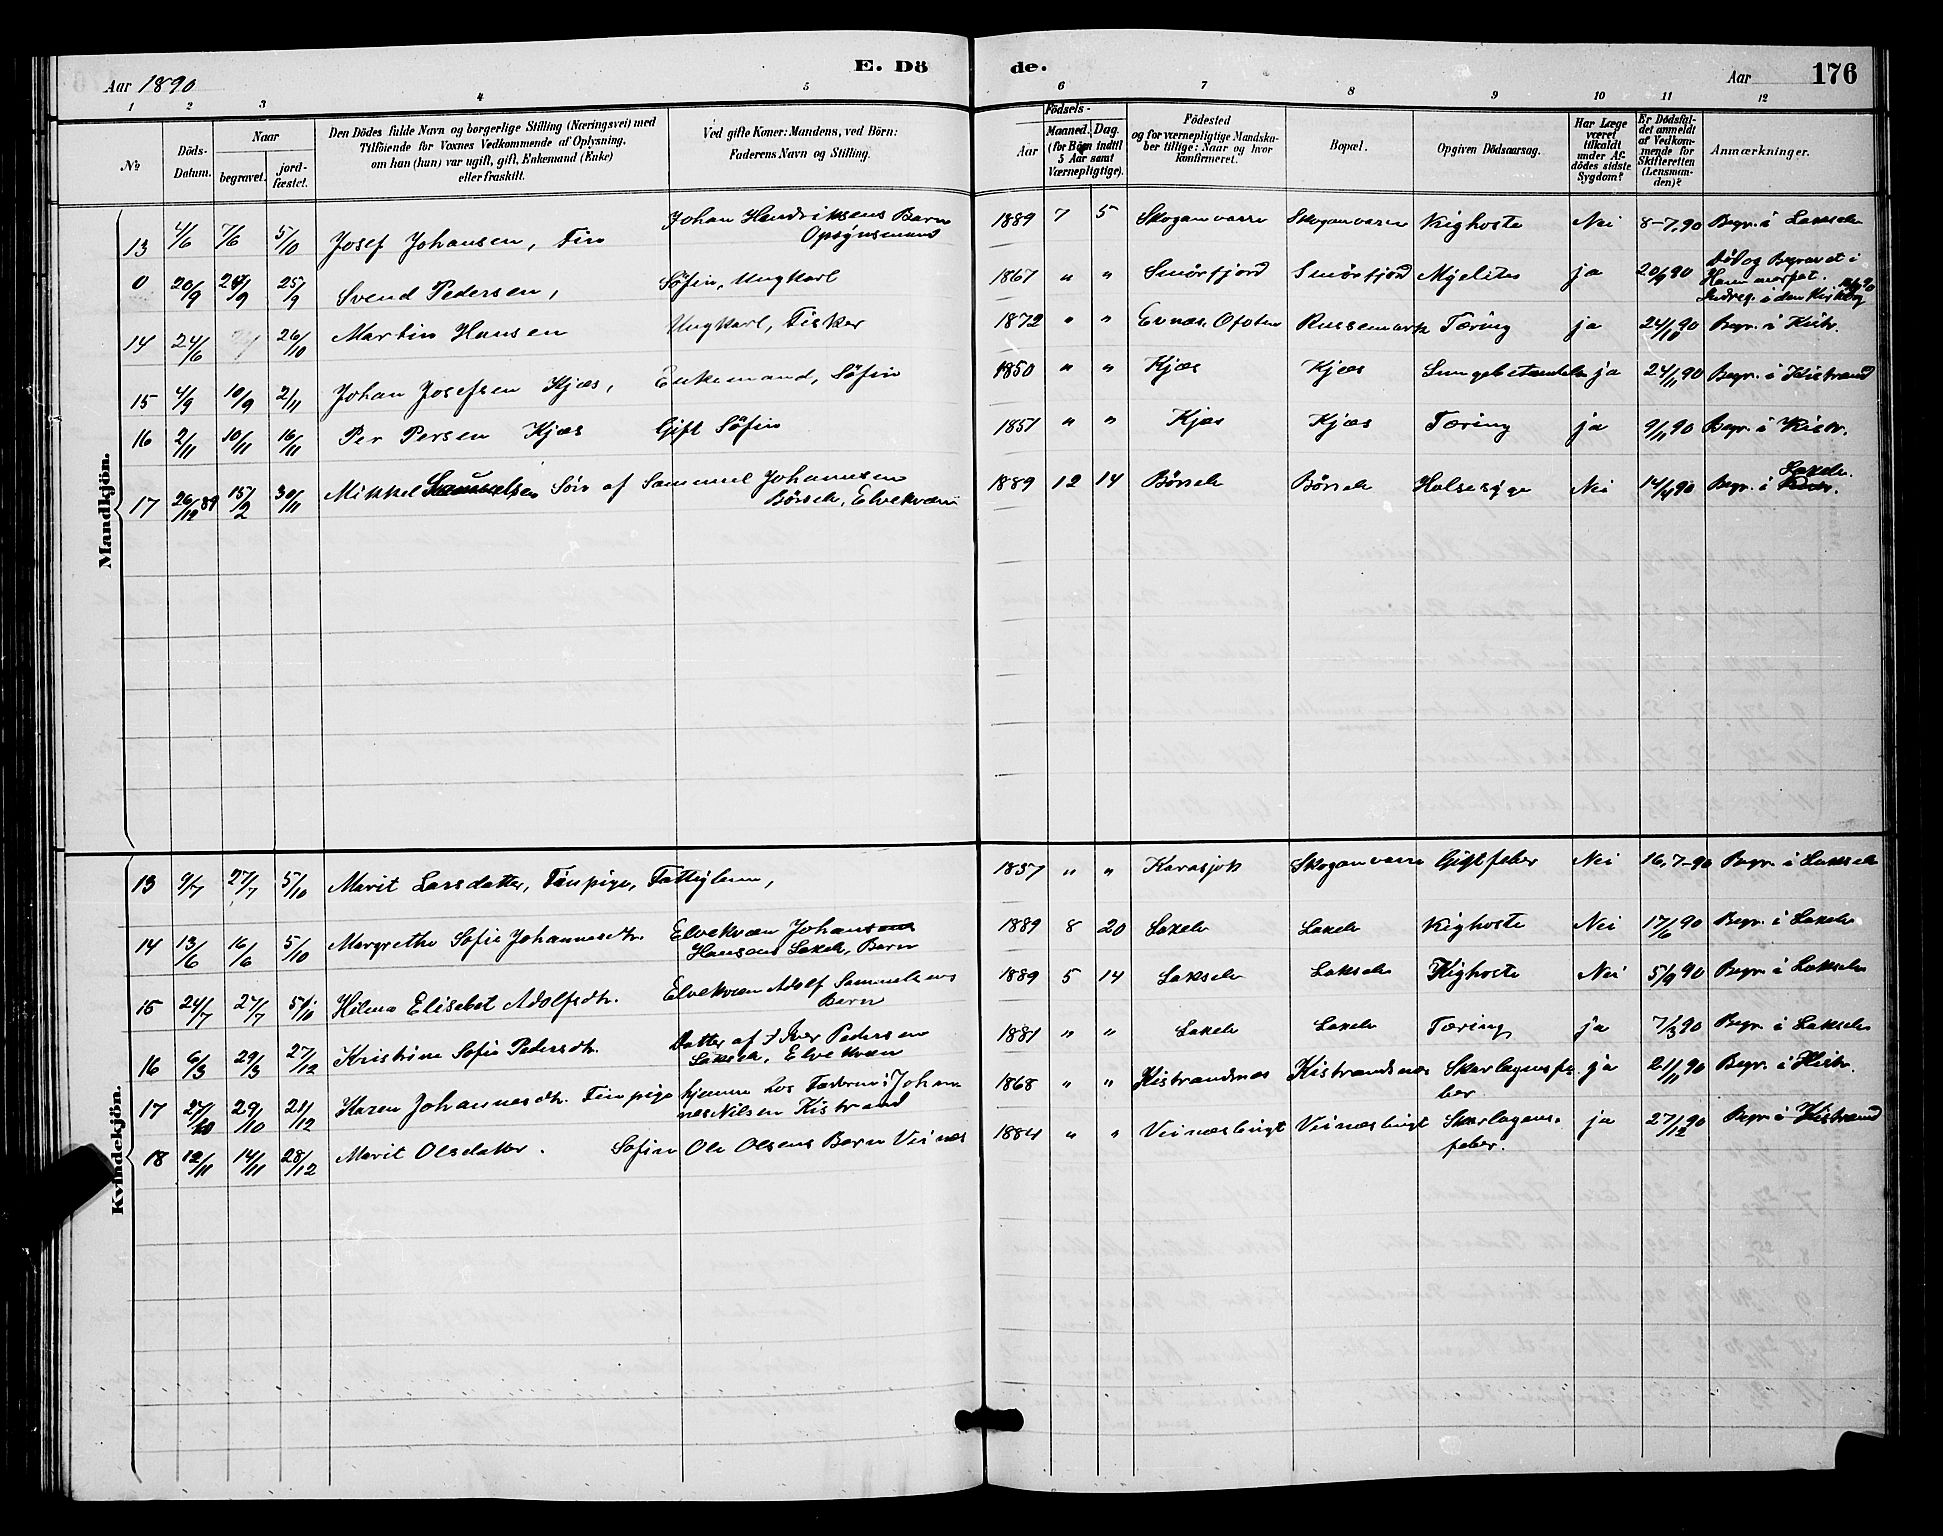 E. Dö de.
Aar 1890
Aar 176
1 2 3 4 5 6 7 8 9 10 11 12
No
Döds-Datum.
Naar
begravet.
jord-fæstet.
Den Dödes fulde Navn og borgerlige Stilling (Næringsvei) med
Tilföiende for Voxnes Vedkommende af Oplysning,
om han (hun) var ugift, gift, Enkemand (Enke)
eller fraskilt.
Ved gifte Koner: Mandens, ved Börn:
Faderens Navn og Stilling.
Födsels-
Aar
Maaned. Dag.
(for Börn indtil
5 Aar samt
Værnepligtige).
Födested
og for værnepligtige Mandska-
ber tillige: Naar og hvor
konfirmeret.
Bopæl.
Opgiven Dödsaarsag.
Har Læge
været
tilkaldt
under Af-
dödes sidste
Sygdom?
Er Dödsfal-
det anmeldt
af Vedkom-
mende for
Skifteretten
(Lensman-
den)?
Anmærkninger.
Mandkjön.
13 4/6 7/6 5/10 Josef Johansen, Fin Johan Hendriksens Barn Opsynsmand 1889 7 5 Skoganvarre Skoganvarre Kighoste Nei 8-7.90 Begr. i Lakselv
0 20/9 24/9 25/9 Svend Pedersen, Söfin, Ungkarl 1867 " " Smörfjord Smörfjord Myelites ja 20/9 90 Död og Begravet i
14 24/6 26/10 Martin Hansen Ungkarl, Fisker 1872 " " Evnæs Ofoten Russemark Tæring ja 24/10 90 Begr. i Kistr.
15 4/9 10/9 2/11 Johan Josefsen Kjæs, Enkemand, Söfin 1850 " " Kjæs Kjæs ja 24/11 90 Begr. i Kistrand
16 2/11 10/11 16/11 Per Persen Kjæs Gift Söfin 1851 " " Kjæs Kjæs Tæring ja 9/11 90 Begr. i Kistr.
17 26/12 89 15/2 30/11 Mikkel Samuelsen Sön af Sammuel Johannesen Börselv, Elvekvæn 1889 12 14 Börselv Börselv Halsesyge Nei 14/4 90 Begr. i Kistr. Lakselv.
Kvindekjön.
13 9/7 27/7 5/10 Marit Larsdatter, Finpige, Fattiglem, 1837 " " Karasjok Skoganvarre Giftfeber Nei 16.7-90 Begr. i Lakselv
14 13/6 16/6 5/10 Margrethe Sofie Johannesdtr. Elvekvæn Johan Hansens Lakselv, Barn 1889 8 20 Lakselv Lakselv Kighoste Nei 17/6 90 Begr. i Lakselv
15 24/7 27/7 5/10 Helena Elisabet Adolfsdtr. Elvekvæn Adolf Sammelsens Barn 1889 5 14 Lakselv Lakselv Kighoste Nei 5/9 90 Begr. i Lakselv
16 6/3 29/3 27/12 Kristine Sofie Pedersdtr. Datter af † Iver Pedersen Lakselv, Elvekvæn 1881 " " Lakselv Lakselv Tæring ja 7/3 90 Begr. i Lakselv
17 27/10 29/10 21/12 Karen Johannesdtr. Finpige hjemme hos Faderen: Johannes Nilsen Kistrand 1868 " " Kistrandnæs Kistrandsnæs Skarlagensfeber ja 21/11 90 Begr. i Kistr.
18 12/11 14/11 28/12 Marit Olsdatter. Söfin Ole Olsens Barn Veinæs 1884 " " Veinæsbugt Veinæsbugt Skarlagensfeber. ja 27/12 90 Begr. i Kistrand